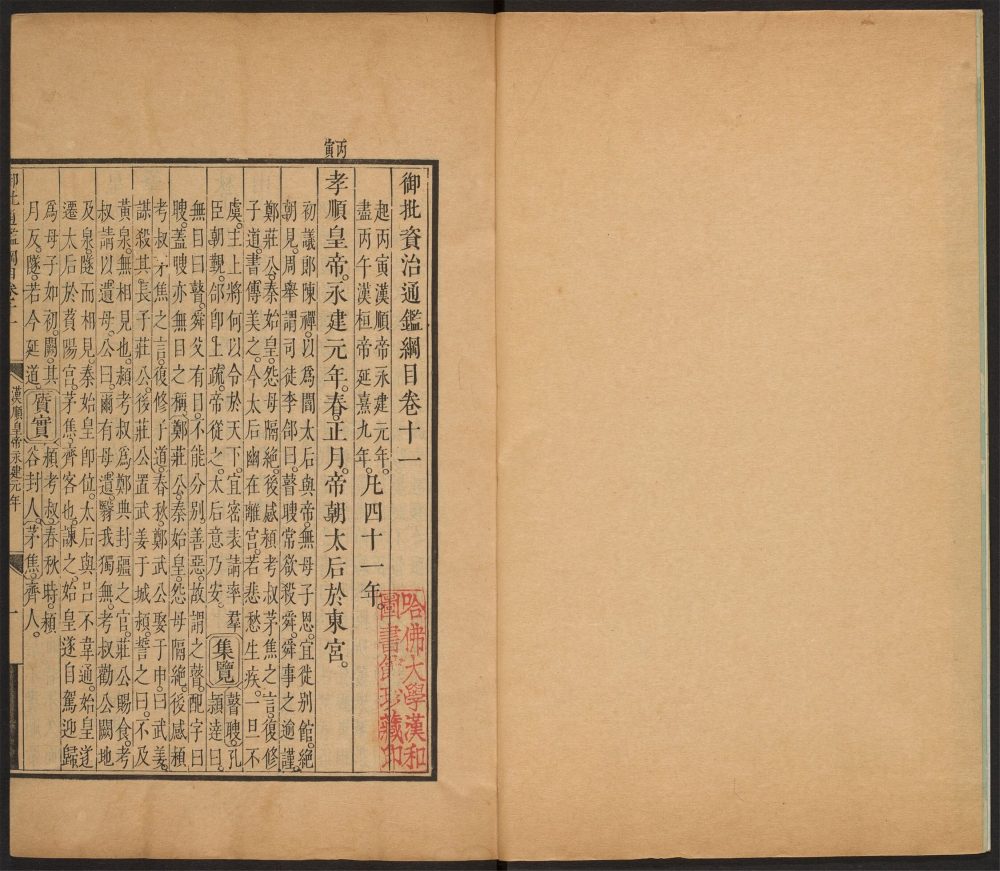 御批資治通鑑綱目卷十一
起丙寅漢順帝永建元年。
盡丙午漢桓帝延熹九年。
凡四十一年。
哈佛大學漢和
圖書館珍藏印
丙寅
孝順皇帝。永建元年。春。正月。帝朝太后於東宮。
初議郎陳禪。以爲閻太后與帝。無母子恩。宜徙别館。絶
朝見。周舉謂司徒李郃曰。瞽瞍常欲殺舜。舜事之逾謹。
鄭莊公秦始皇。怨母隔絶。後感潁考叔茅焦之言。復修
子道。書傳美之。今太后幽在離宮。若悲愁生疾。一旦不
虞。主上將何以令於天下。宜密表請率羣
臣朝覲。郃卽上疏。帝從之。太后意乃安。
集覽
瞽瞍。孔
穎達曰。
無目曰瞽。舜父有目。不能分別善惡。故謂之瞽。配字曰
瞍。蓋瞍亦無目之稱。鄭莊公秦始皇。怨母隔絶。後感潁
考叔茅焦之言。復修子道。春秋。鄭武公娶于申。曰武姜。
謀殺其長子莊公。後莊公置武姜于城潁。誓之曰。不及
黄泉。無相見也。潁考叔爲鄭典封疆之官。莊公賜食。考
叔請以遺母。公曰。爾有母遺。繄我獨無。考叔勸公闕地
及泉。隧而相見。秦始皇卽位。太后與呂不韋通。始皇遂
遷太后於萯陽宮。茅焦。齊客也。諫之。始皇遂自駕迎歸。
爲母子如初。闕。其
月反。隧。若今延道。
質實
潁考叔。春秋時。潁
谷封人。茅焦。齊人。
御批通鑑綱目卷十一
漢順皇帝永建元年
一